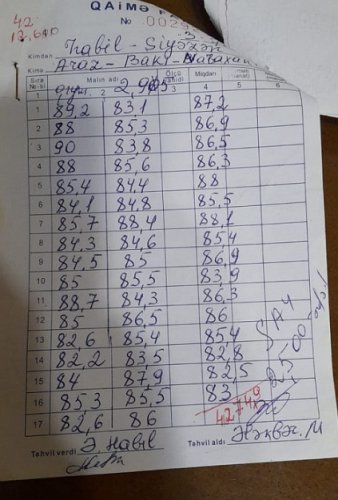 QAİMƏ
42
12.600
№ 002
Kimdən Habil - Siyəzən
Kimə Araz - Bakı -
Sıra №-si Malın adı 2,905 Ölçü Miqdarı
2 3 4 5 6
1 89,2 83,1 87,2
2 88 85,3 86,9
3 90 83,8 86,5
4 88 85,6 86,3
5 85,4 84,4 88
6 84,1 84,8 85,5
7 85,7 88,4 88,1
8 84,3 84,6 85,4
9 84,5 85 86,9
10 85 85,5 83,9
11 88,7 84,3 86,3
12 85 86,5 86
13 82,6 85,4 85,4
14 82,2 83,5 82,8
15 84 87,9 82,5
16 85,3 85,5 83
17 82,6 86
42749
Təhvil verdi Ə. Habil Təhvil aldı